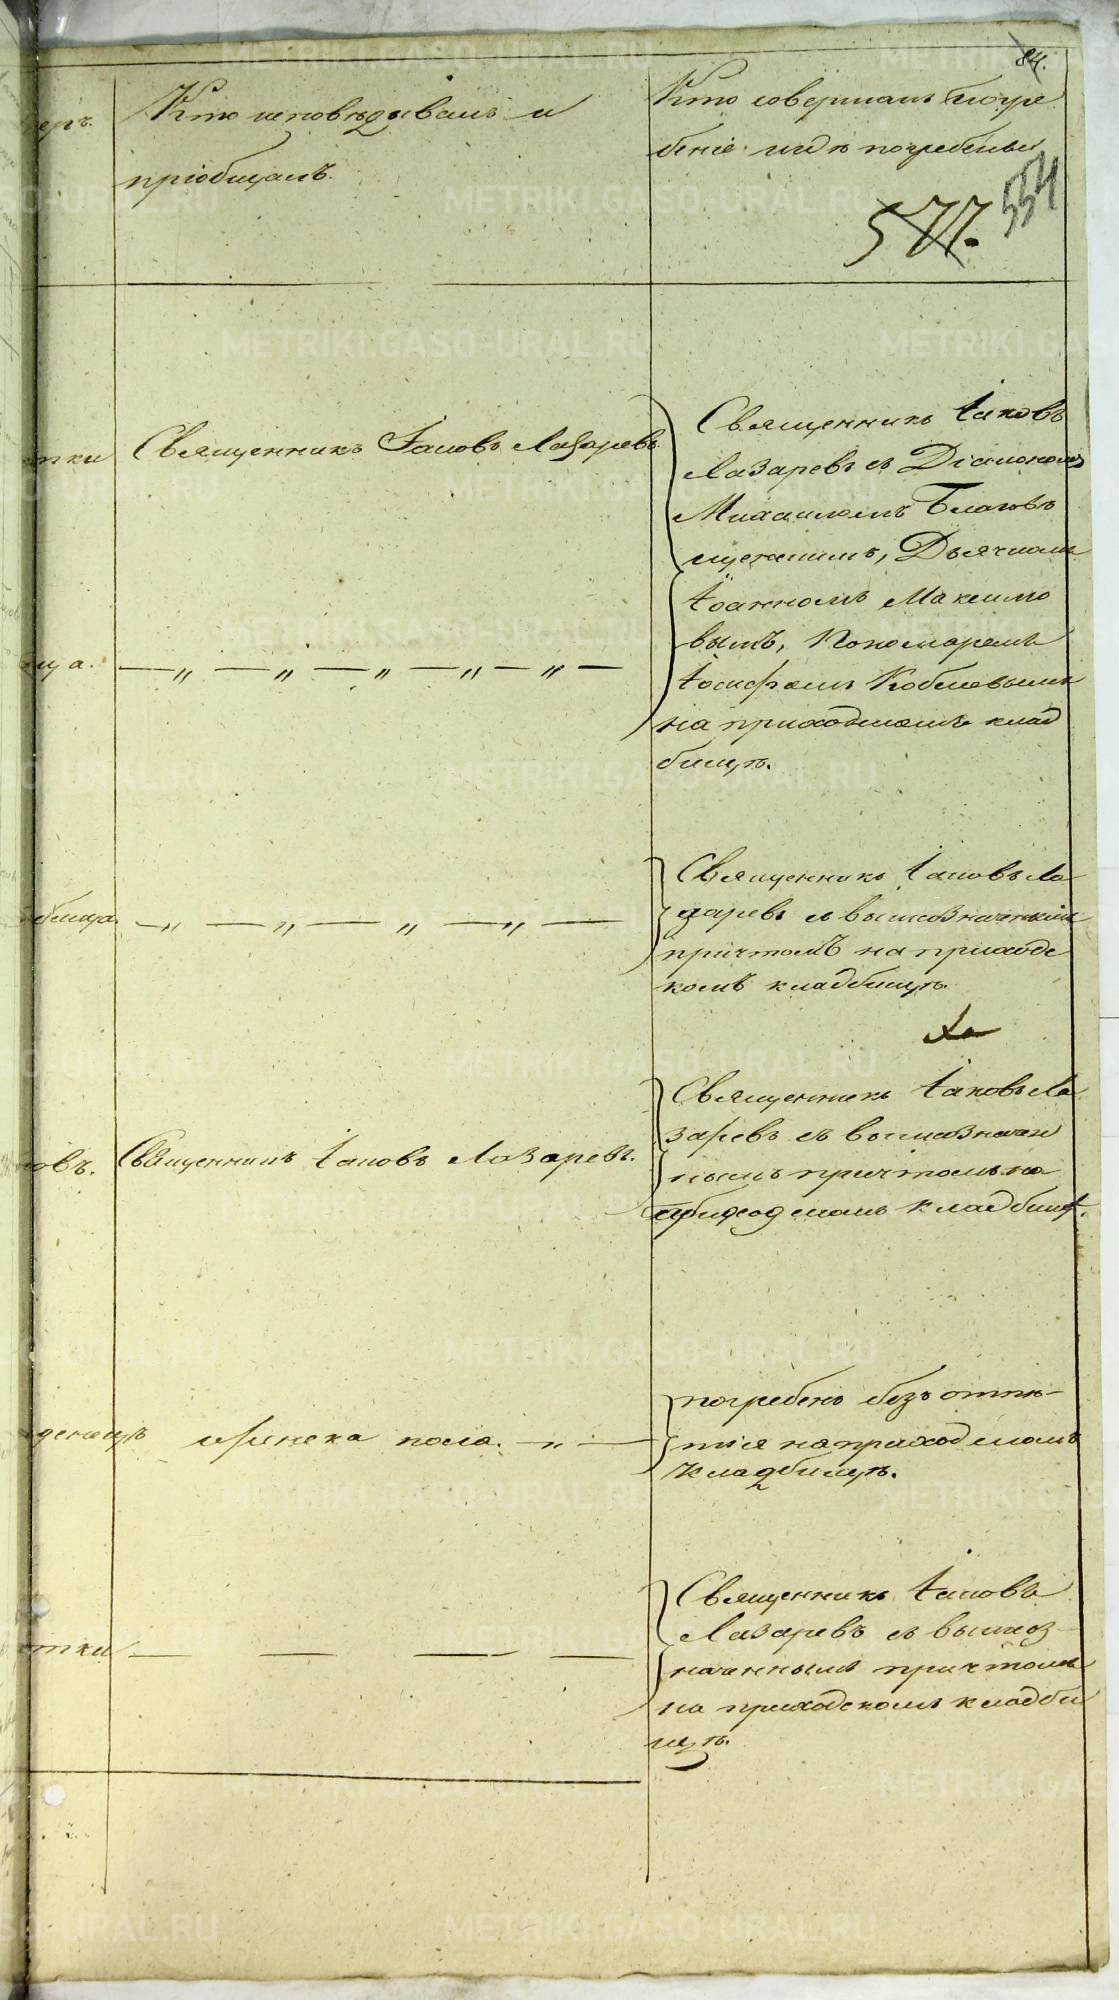 84.
Кто исповѣдывалъ и
пріобщалъ.
Кто совершалъ погре
беніе и гдѣ погребены
577.
554
Священникъ Іаковъ Лазаревъ
Священникъ Іаковъ
Лазаревъ съ Діакономъ
Михаиломъ Благовѣ
щенскимъ, Дьячкомъ
Іоанномъ Максимо
вымъ, Пономаремъ
Іосифомъ Кобелевымъ
на приходскомъ клад
бищѣ.
ица. — „ — „ — „ — „ — „ —
Священникъ Іаковъ Ла
заревъ съ вышеозначеннымъ
причтомъ на приходс
комъ кладбищѣ.
бища. — „ — „ — „ — „ —
Священникъ Іаковъ Ла
заревъ съ вышеозначен
нымъ причтомъ на
приходскомъ кладбищѣ.
овъ. Священникъ Іаковъ Лазаревъ.
погребенъ безъ отпѣ-
тія на приходскомъ
кладбищѣ.
денецъ мужеска пола. — „ —
Священникъ Іаковъ
Лазаревъ съ вышеоз
наченнымъ причтомъ
на приходскомъ кладби
щѣ.
отки — — — —
METRIKI.GASO-URAL.RU